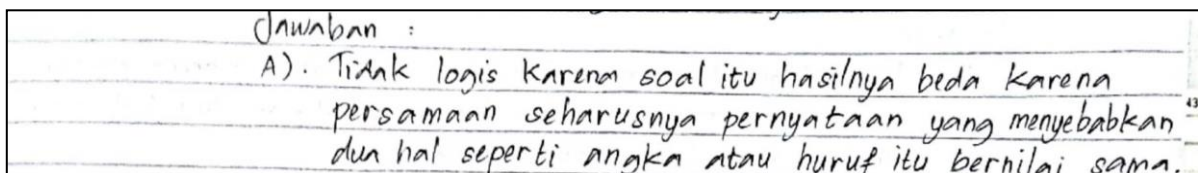 Jawaban :
A). Tidak logis Karena soal itu hasilnya beda Karena
persamaan seharusnya pernyataan yang menyebabkan
dua hal seperti angka atau huruf itu bernilai sama.
43